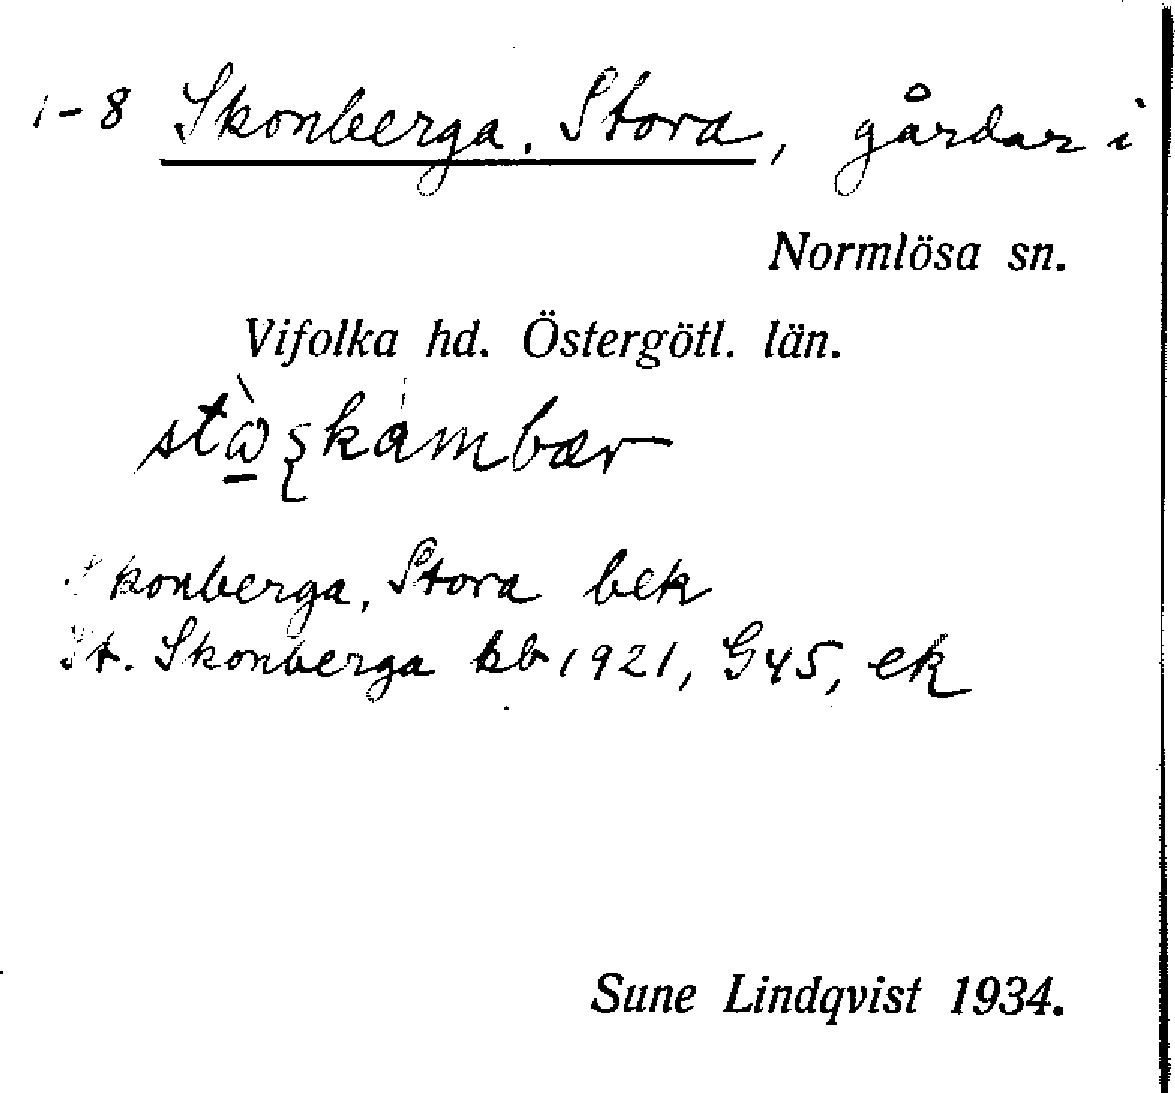 1-8 Skonberga, Stora, gårdar i
Normlösa sn.
Vifolka hd. Östergötl. län.
Skonberga, Stora bek
St. Skonberga kb 1921, G45, ek
Sune Lindqvist 1934.